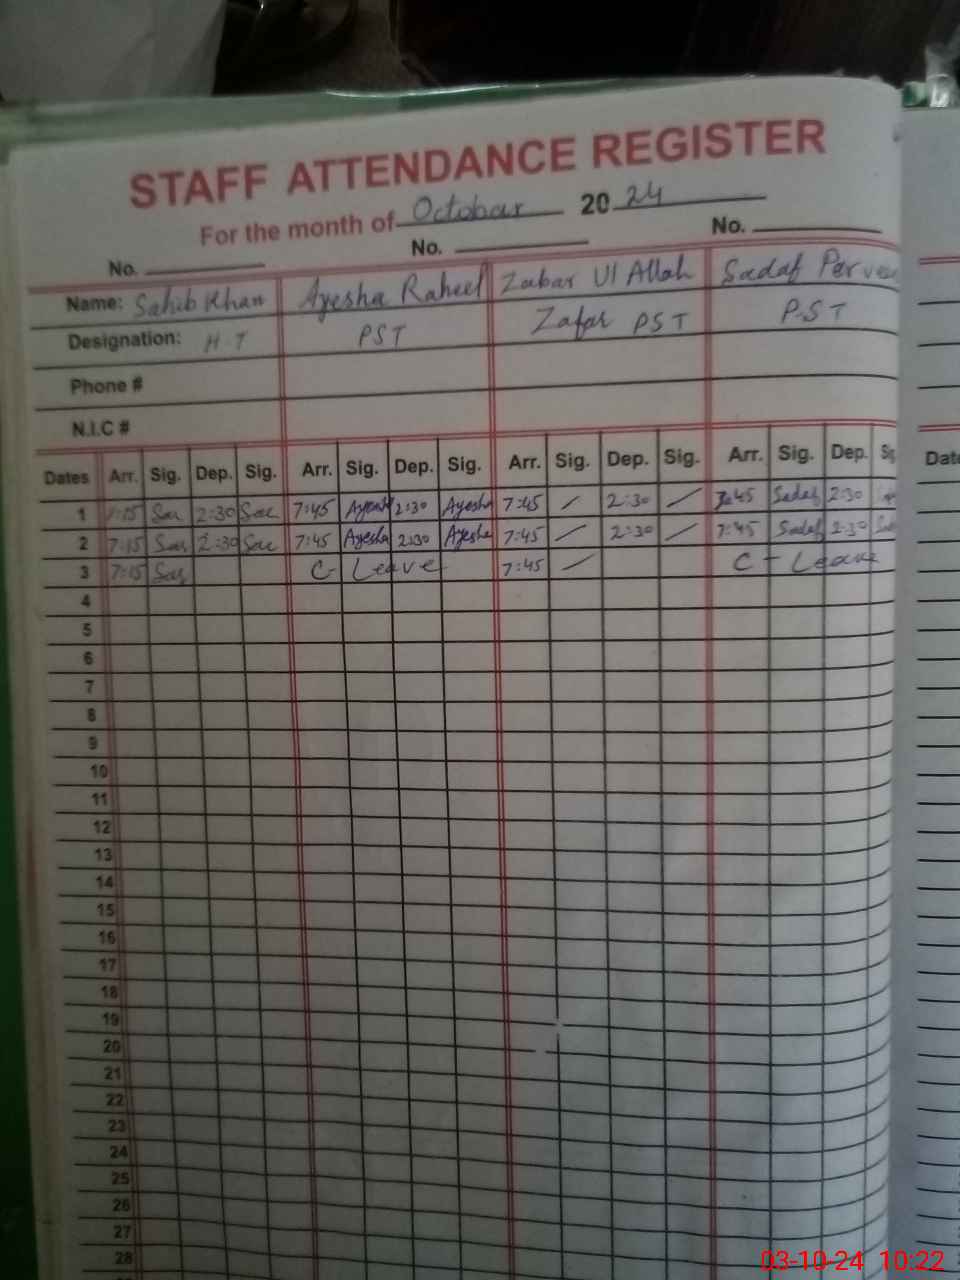 STAFF ATTENDANCE REGISTER
For the month of October 2024
No. No. No.
Name: Sahib Khan Ayesha Raheel Zabar Ul Allah Sadaf Perveen
Designation: H-T PST Zafar PST P-ST
Phone #
N.I.C #
Dates Arr. Sig. Dep. Sig. Arr. Sig. Dep. Sig. Arr. Sig. Dep. Sig. Arr. Sig. Dep. Date
1 7:15 2:30 7:45 Ayesha 2:30 Ayesha 7:45 2:30 7:45 Sadaf 2:30
2 7:15 2:30 7:45 Ayesha 2:30 Ayesha 7:45 2:30 7:45 Sadaf 2:30
3 7:15 C- Leave 7:45 C - Leave
4
5
6
7
8
9
10
11
12
13
14
15
16
17
18
19
20
21
22
23
24
25
26
27
28
03-10-24 10:22